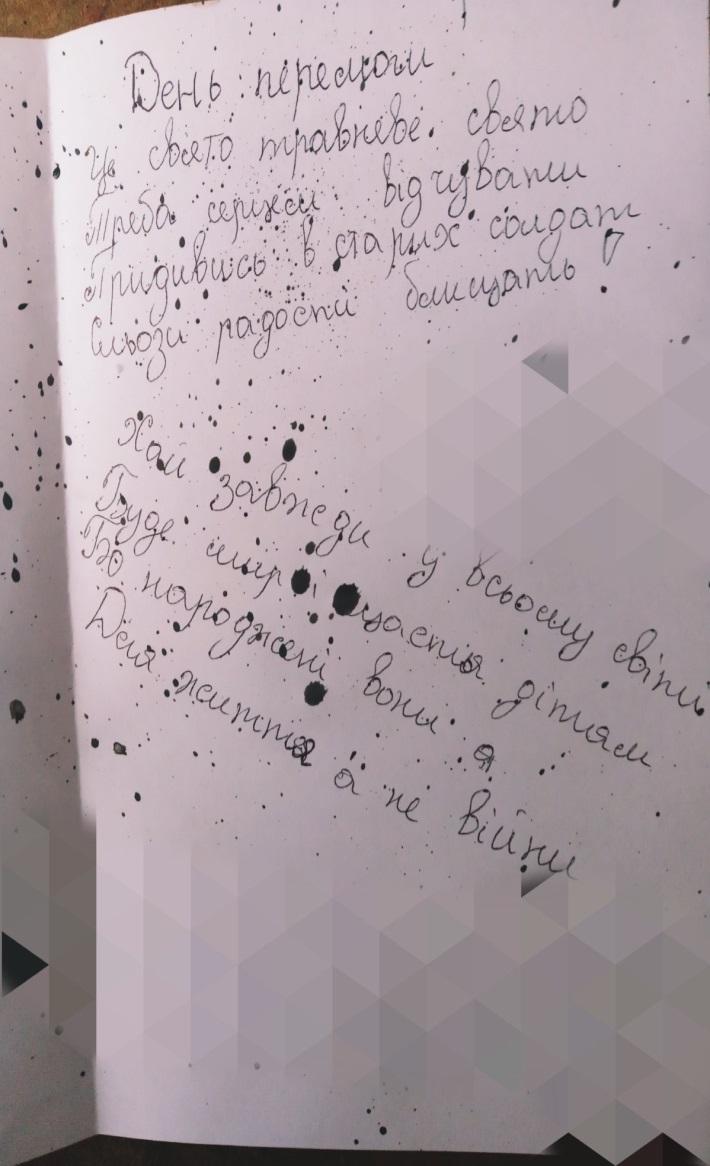 День перемоги
Це свято травневе. свято
Треба серцем відчувати
Придивись в старих солдат
Сльози радости блищать!
Хай завжеди у всьому світи
Буде мир і щастя дітям
Бо народжені вони я
Для життя а не війни